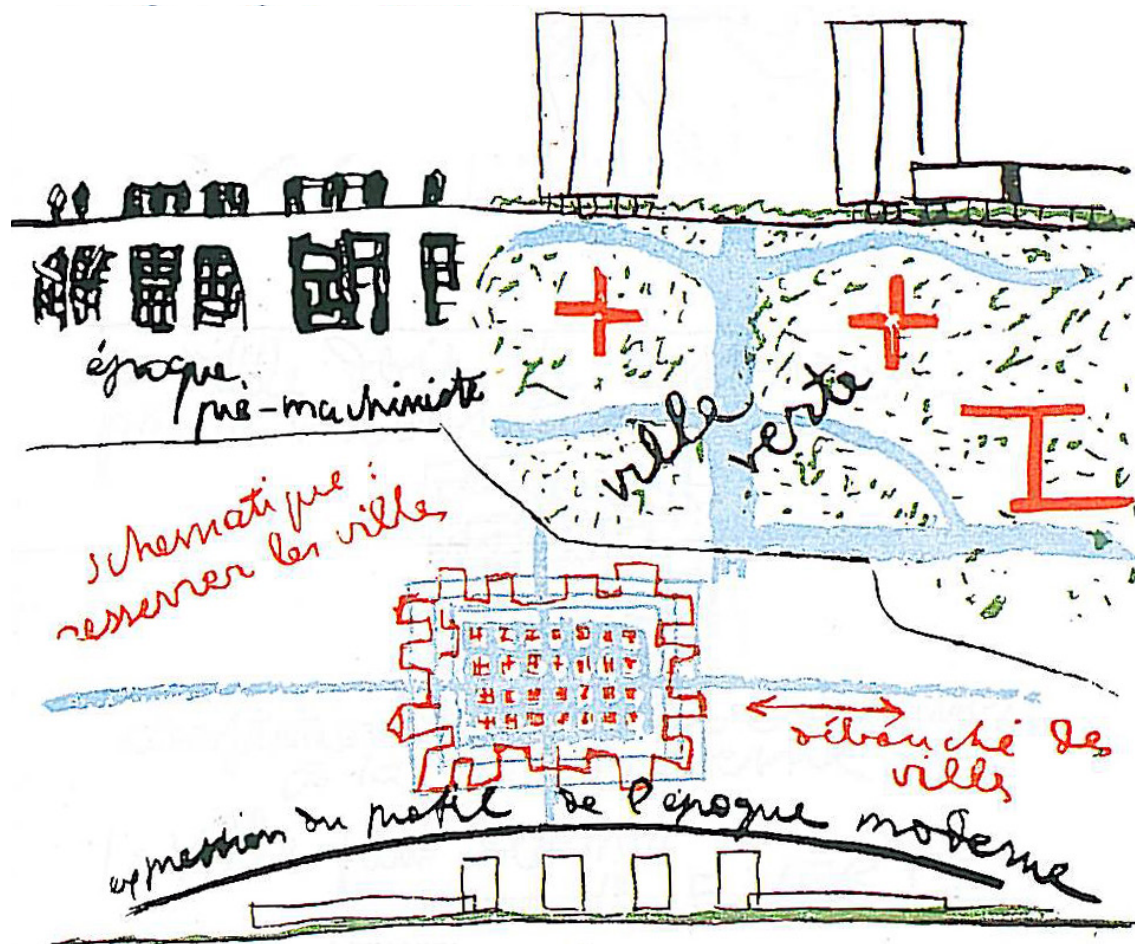 époque
pré-machiniste
ville
verte
schematique :
resserrer les villes
débouché des
villes
expression du profil de l'époque moderne